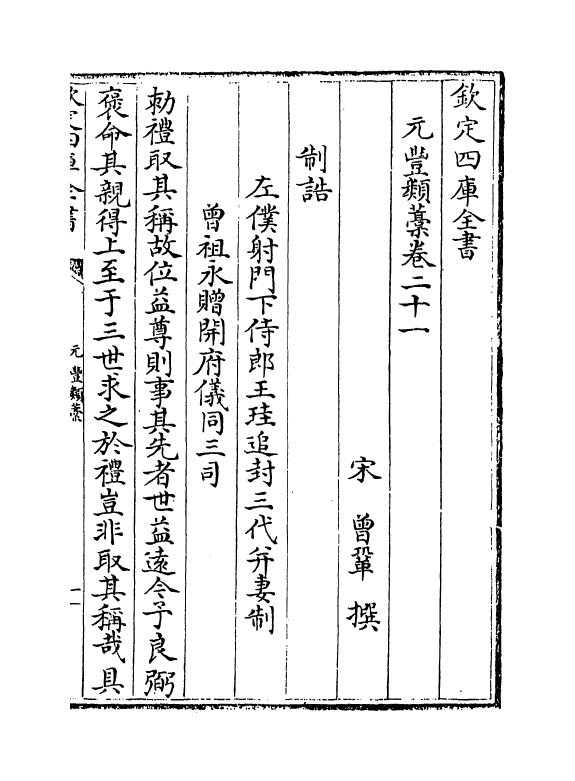 欽定四庫全書
元豐類藁卷二十一
宋 曾鞏 撰
制誥
左僕射門下侍郎王珪追封三代并妻制
曾祖永贈開府儀同三司
勅禮取其稱故位益尊則事其先者世益遠今予良弼
褒命其親得上至于三世求之於禮豈非取其稱哉具
欽定四庫全書
元豐類藁
一